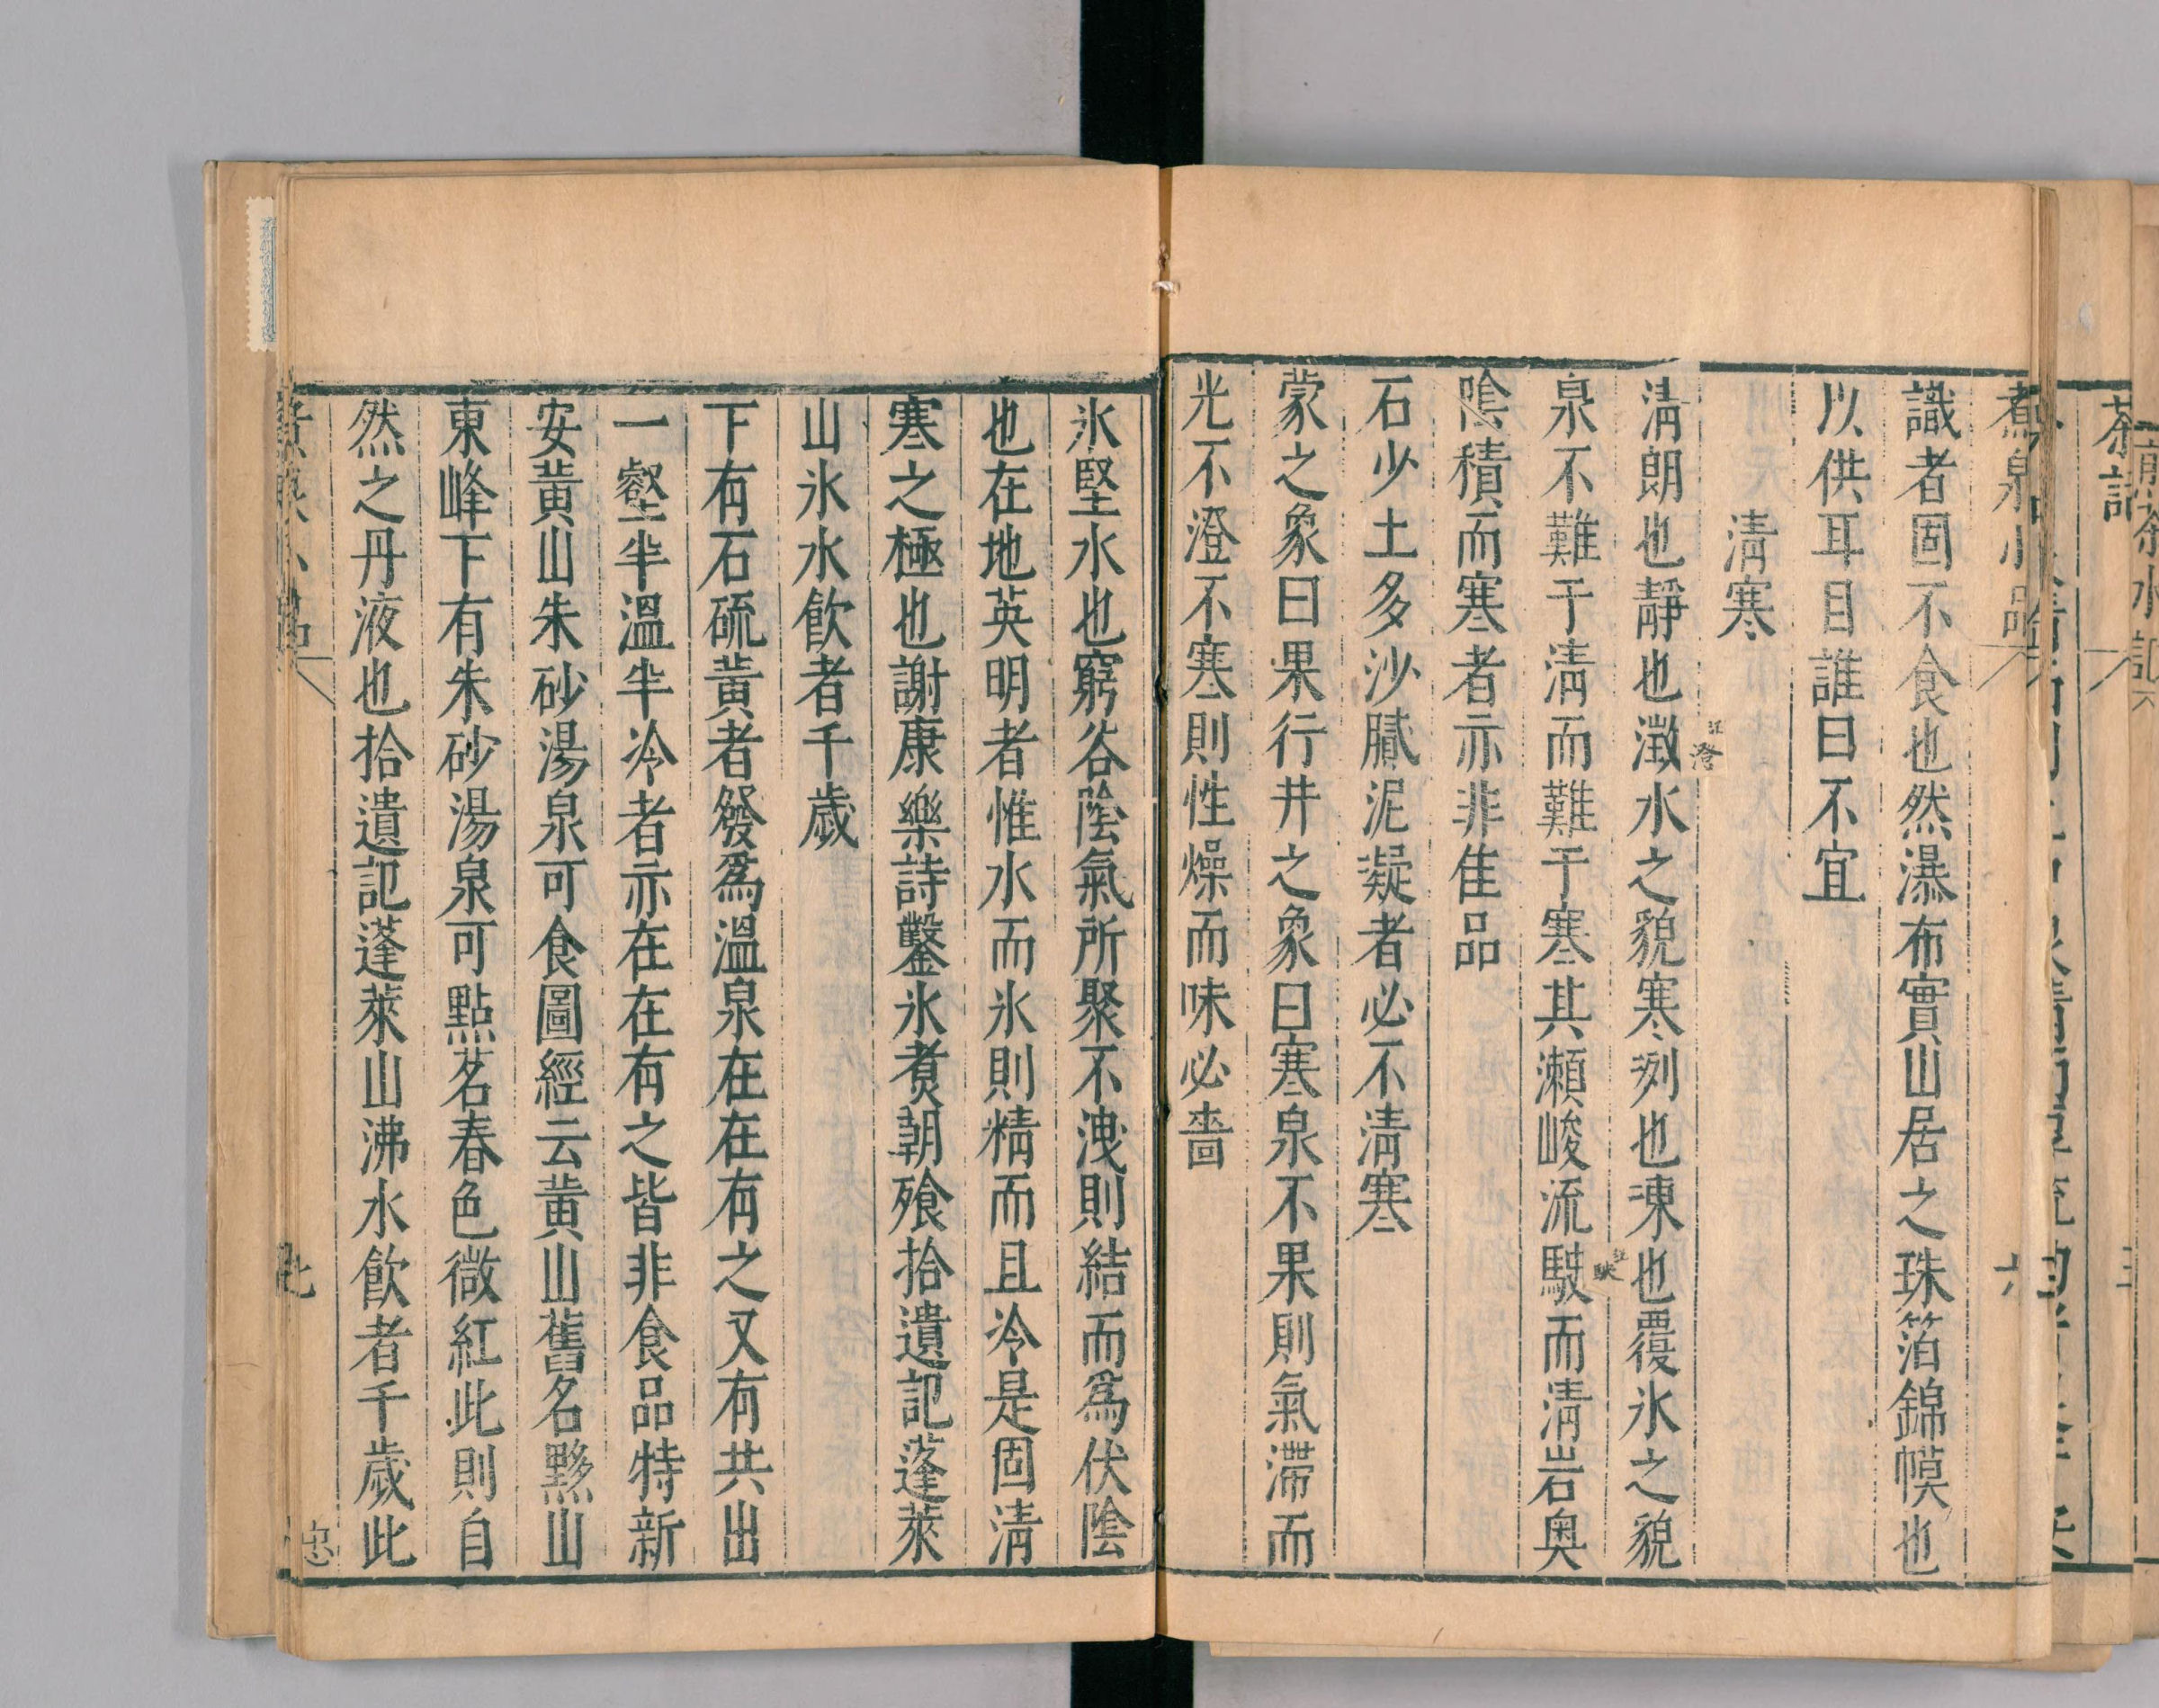 茶記
煮泉小品
六
識者固不食也然瀑布實山居之珠箔錦幙也
以供耳目誰曰不宜
淸寒
淸朗也靜也澂水之貌寒冽也凍也覆氷之貌
澄
泉不難于淸而難于寒其瀨峻流駛而淸岩奥
陰積而寒者亦非佳品
石少土多沙膩泥凝者必不淸寒
蒙之象曰果行井之象曰寒泉不果則氣滯而
光不澄不寒則性燥而味必嗇
氷堅水也窮谷陰氣所聚不洩則結而爲伏陰
也在地英明者惟水而氷則精而且冷是固淸
寒之極也謝康樂詩鑿氷煑朝飱拾遺記蓬萊
山氷水飮者千歲
下有石硫黃者發爲溫泉在在有之又有共出
一壑半溫半冷者亦在在有之皆非食品特新
安黃山朱砂湯泉可食圖經云黃山舊名黟山
東峰下有朱砂湯泉可點茗春色微紅此則自
然之丹液也拾遺記蓬萊山沸水飮者千歲此
忠